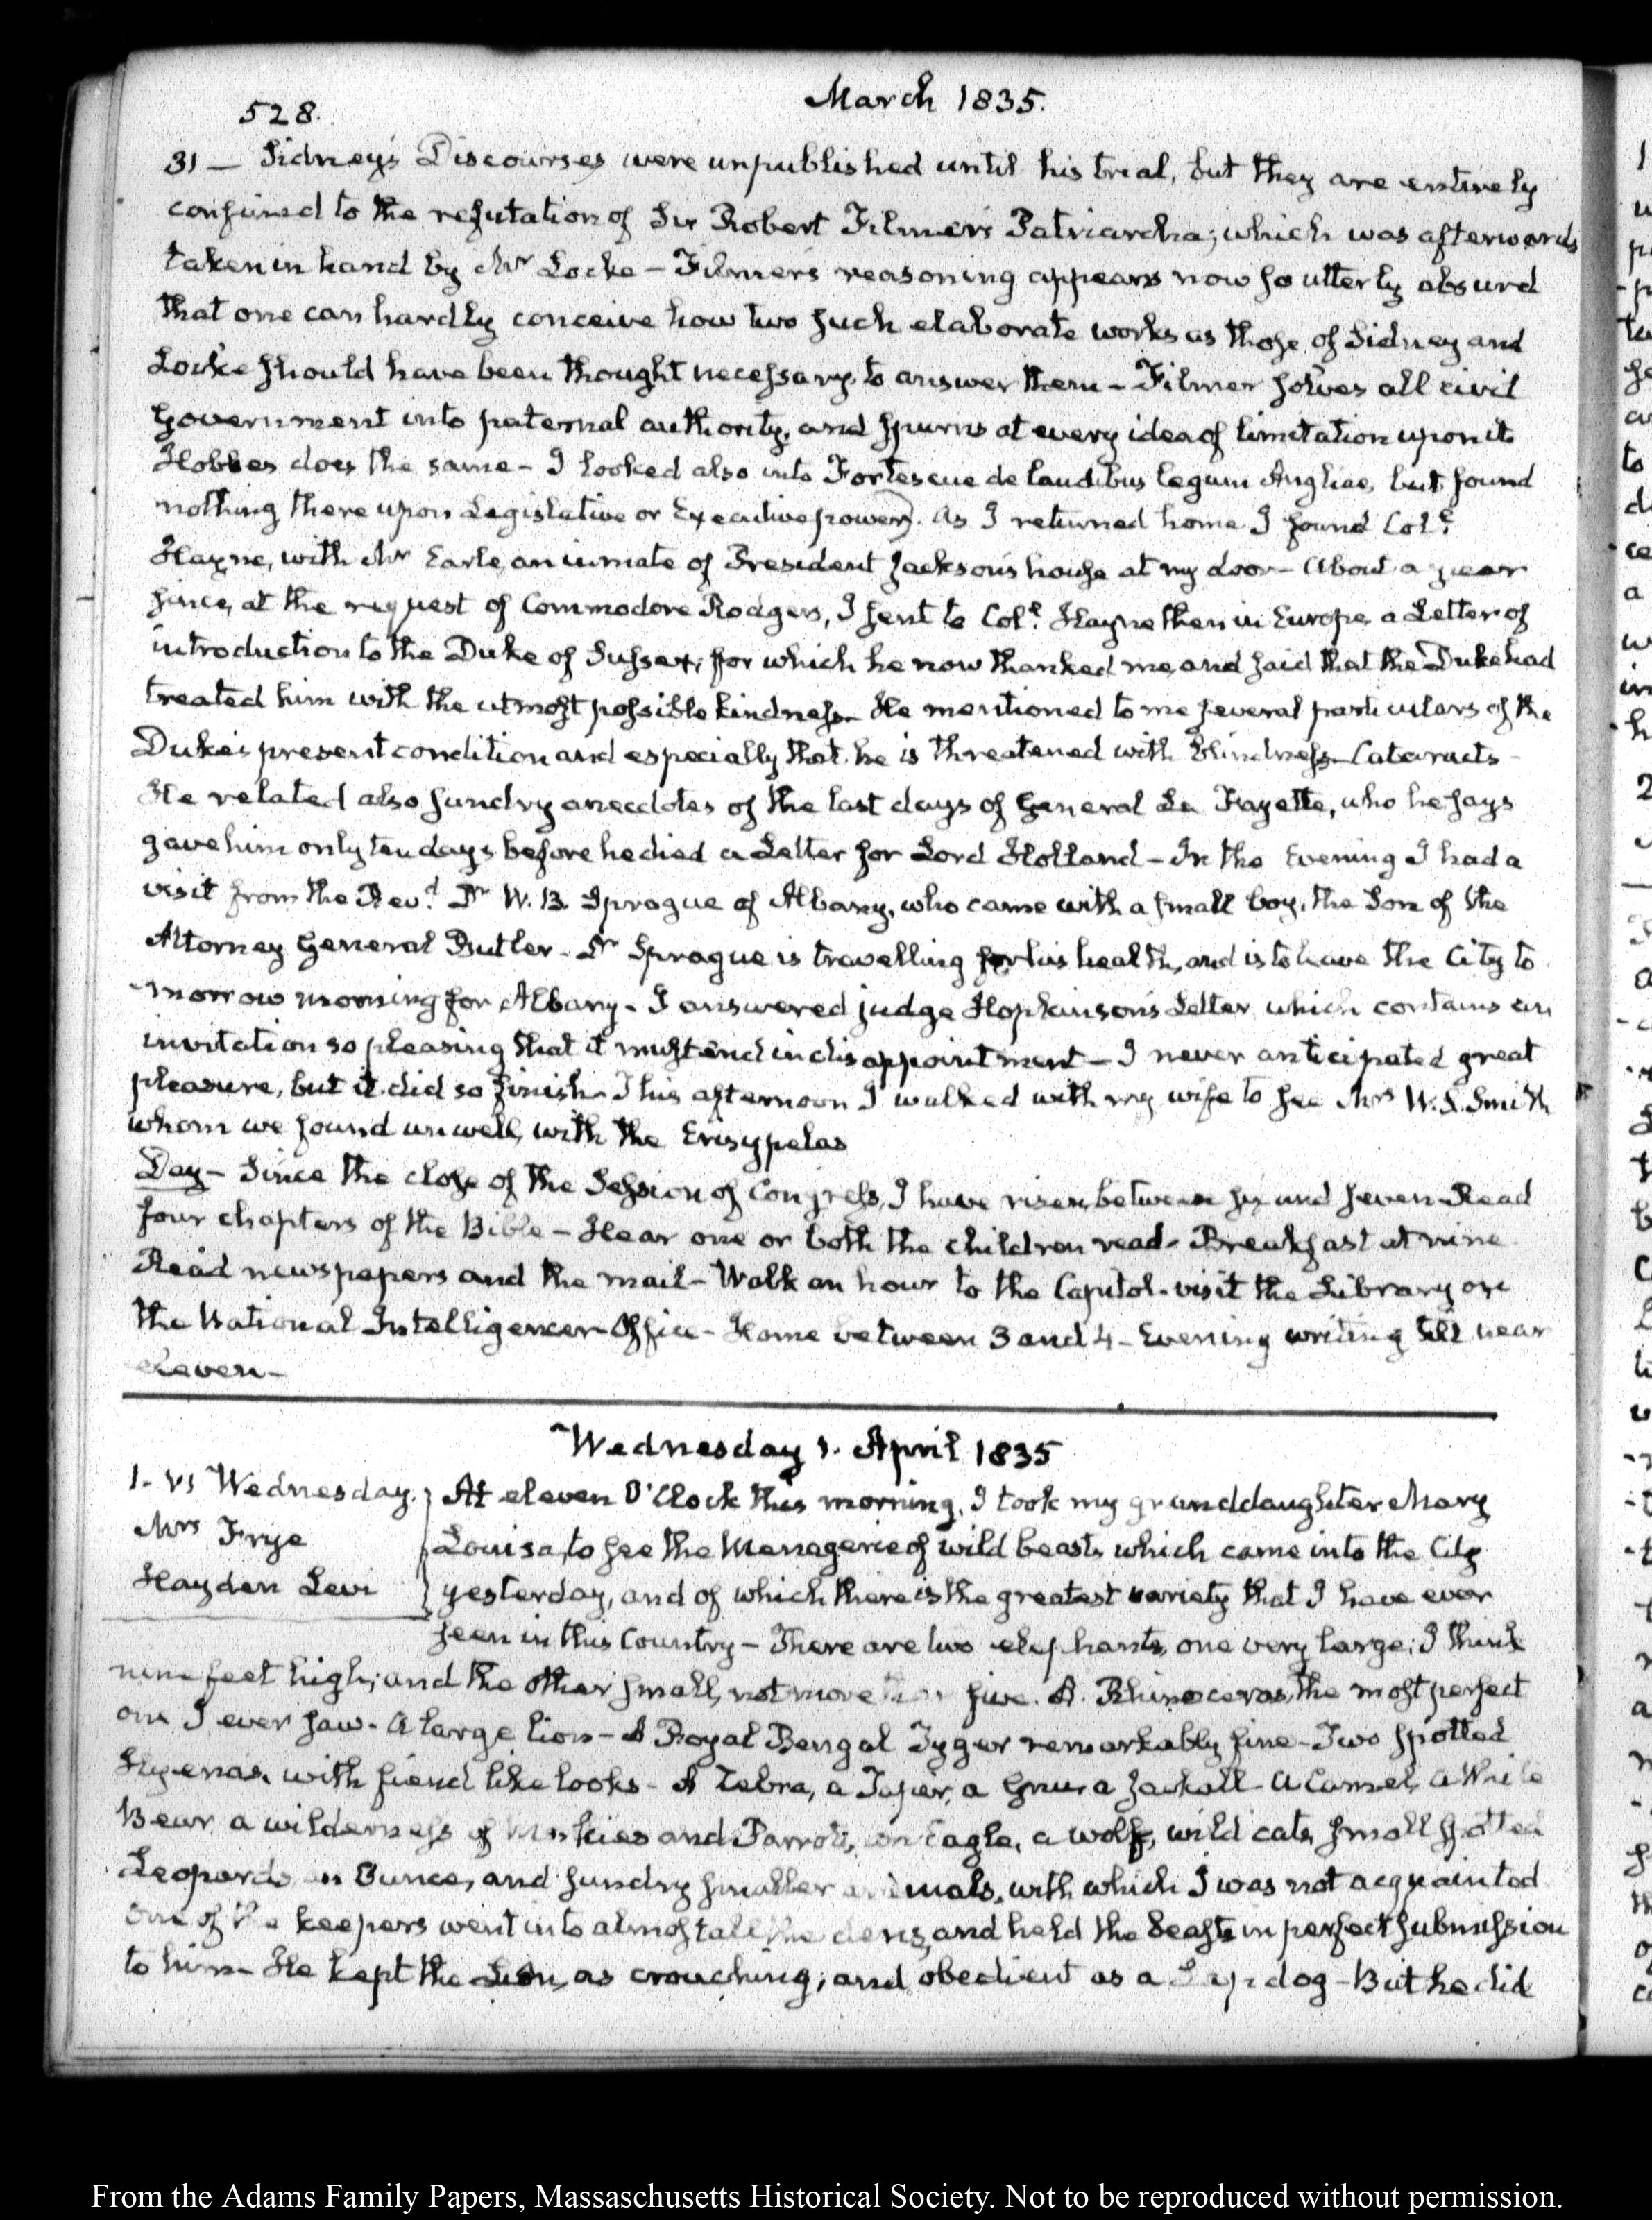 528.
March 1835.
31 — Sidney's Discourses were unpublished until his trial, but they are entirely
confined to the refutation of Sir Robert Filmer's Patriarcha; which was afterwards
taken in hand by Mr Locke — Filmer's reasoning appears now so utterly absurd
that one can hardly conceive how two such elaborate works as those of Sidney and
Locke should have been thought necessary to answer them — Filmer solves all civil
Government into paternal authority, and spurns at every idea of limitation upon it
Hobbes does the same — I looked also into Fortescue de laudibus legum Angliae, but found
nothing there upon Legislative or Executive powers. As I returned home I found Coll.
Hayne, with Mr Earle, an inmate of President Jackson's house at my door — About a year
since, at the request of Commodore Rodgers, I sent to Coll. Hayne then in Europe a Letter of
introduction to the Duke of Sussex; for which he now thanked me, and said that the Duke had
treated him with the utmost possible kindness — He mentioned to me several particulars of the
Duke's present condition and especially that he is threatened with blindness — Cataracts —
He related also sundry anecdotes of the last days of General La Fayette, who he says
gave him only ten days before he died a Letter for Lord Holland — In the Evening I had a
visit from the Revd. Dr W. B. Sprague of Albany, who came with a small boy, the Son of the
Attorney General Butler — Dr Sprague is travelling for his health, and is to leave the City to
morrow morning for Albany — I answered judge Hopkinson's Letter which contains an
invitation so pleasing that it must end in disappointment — I never anticipated great
pleasure, but it did so finish — This afternoon I walked with my wife to see Mrs W. S. Smith
whom we found unwell, with the Erisypelas
Day — Since the close of the Session of Congress, I have risen between six and seven — Read
four chapters of the Bible — Hear one or both the children read — Breakfast at nine
Read newspapers and the mail — Walk an hour to the Capitol — visit the Library or
the National Intelligencer Office — Home between 3 and 4 — Evening writing till near
eleven —
Wednesday 1. April 1835
1. VI Wednesday.
Mrs Frye
Hayden Levi
At eleven O'Clock this morning, I took my granddaughter Mary
Louisa, to see the Menagerie of wild beasts which came into the City
yesterday, and of which there is the greatest variety that I have ever
seen in this Country — There are two elephants, one very large; I think
nine feet high; and the other small, not more than five. A Rhinoceros, the most perfect
one I ever saw — A large lion — A Royal Bengal Tyger remarkably fine — Two spotted
Hyenas, with fiend like looks — A Zebra, a Taper, a Gnu, a Jackall — A Camel, a White
Bear, a wilderness of Monkies and Parrots, an Eagle, a wolf, wild cats, small spotted
Leopards an Ounce, and sundry smaller animals, with which I was not acquainted
One of the keepers went into almost all the dens, and held the beasts in perfect submission
to him — He kept the Lion, as crouching, and obedient as a Lap dog — But he did
From the Adams Family Papers, Massaschusetts Historical Society. Not to be reproduced without permission.